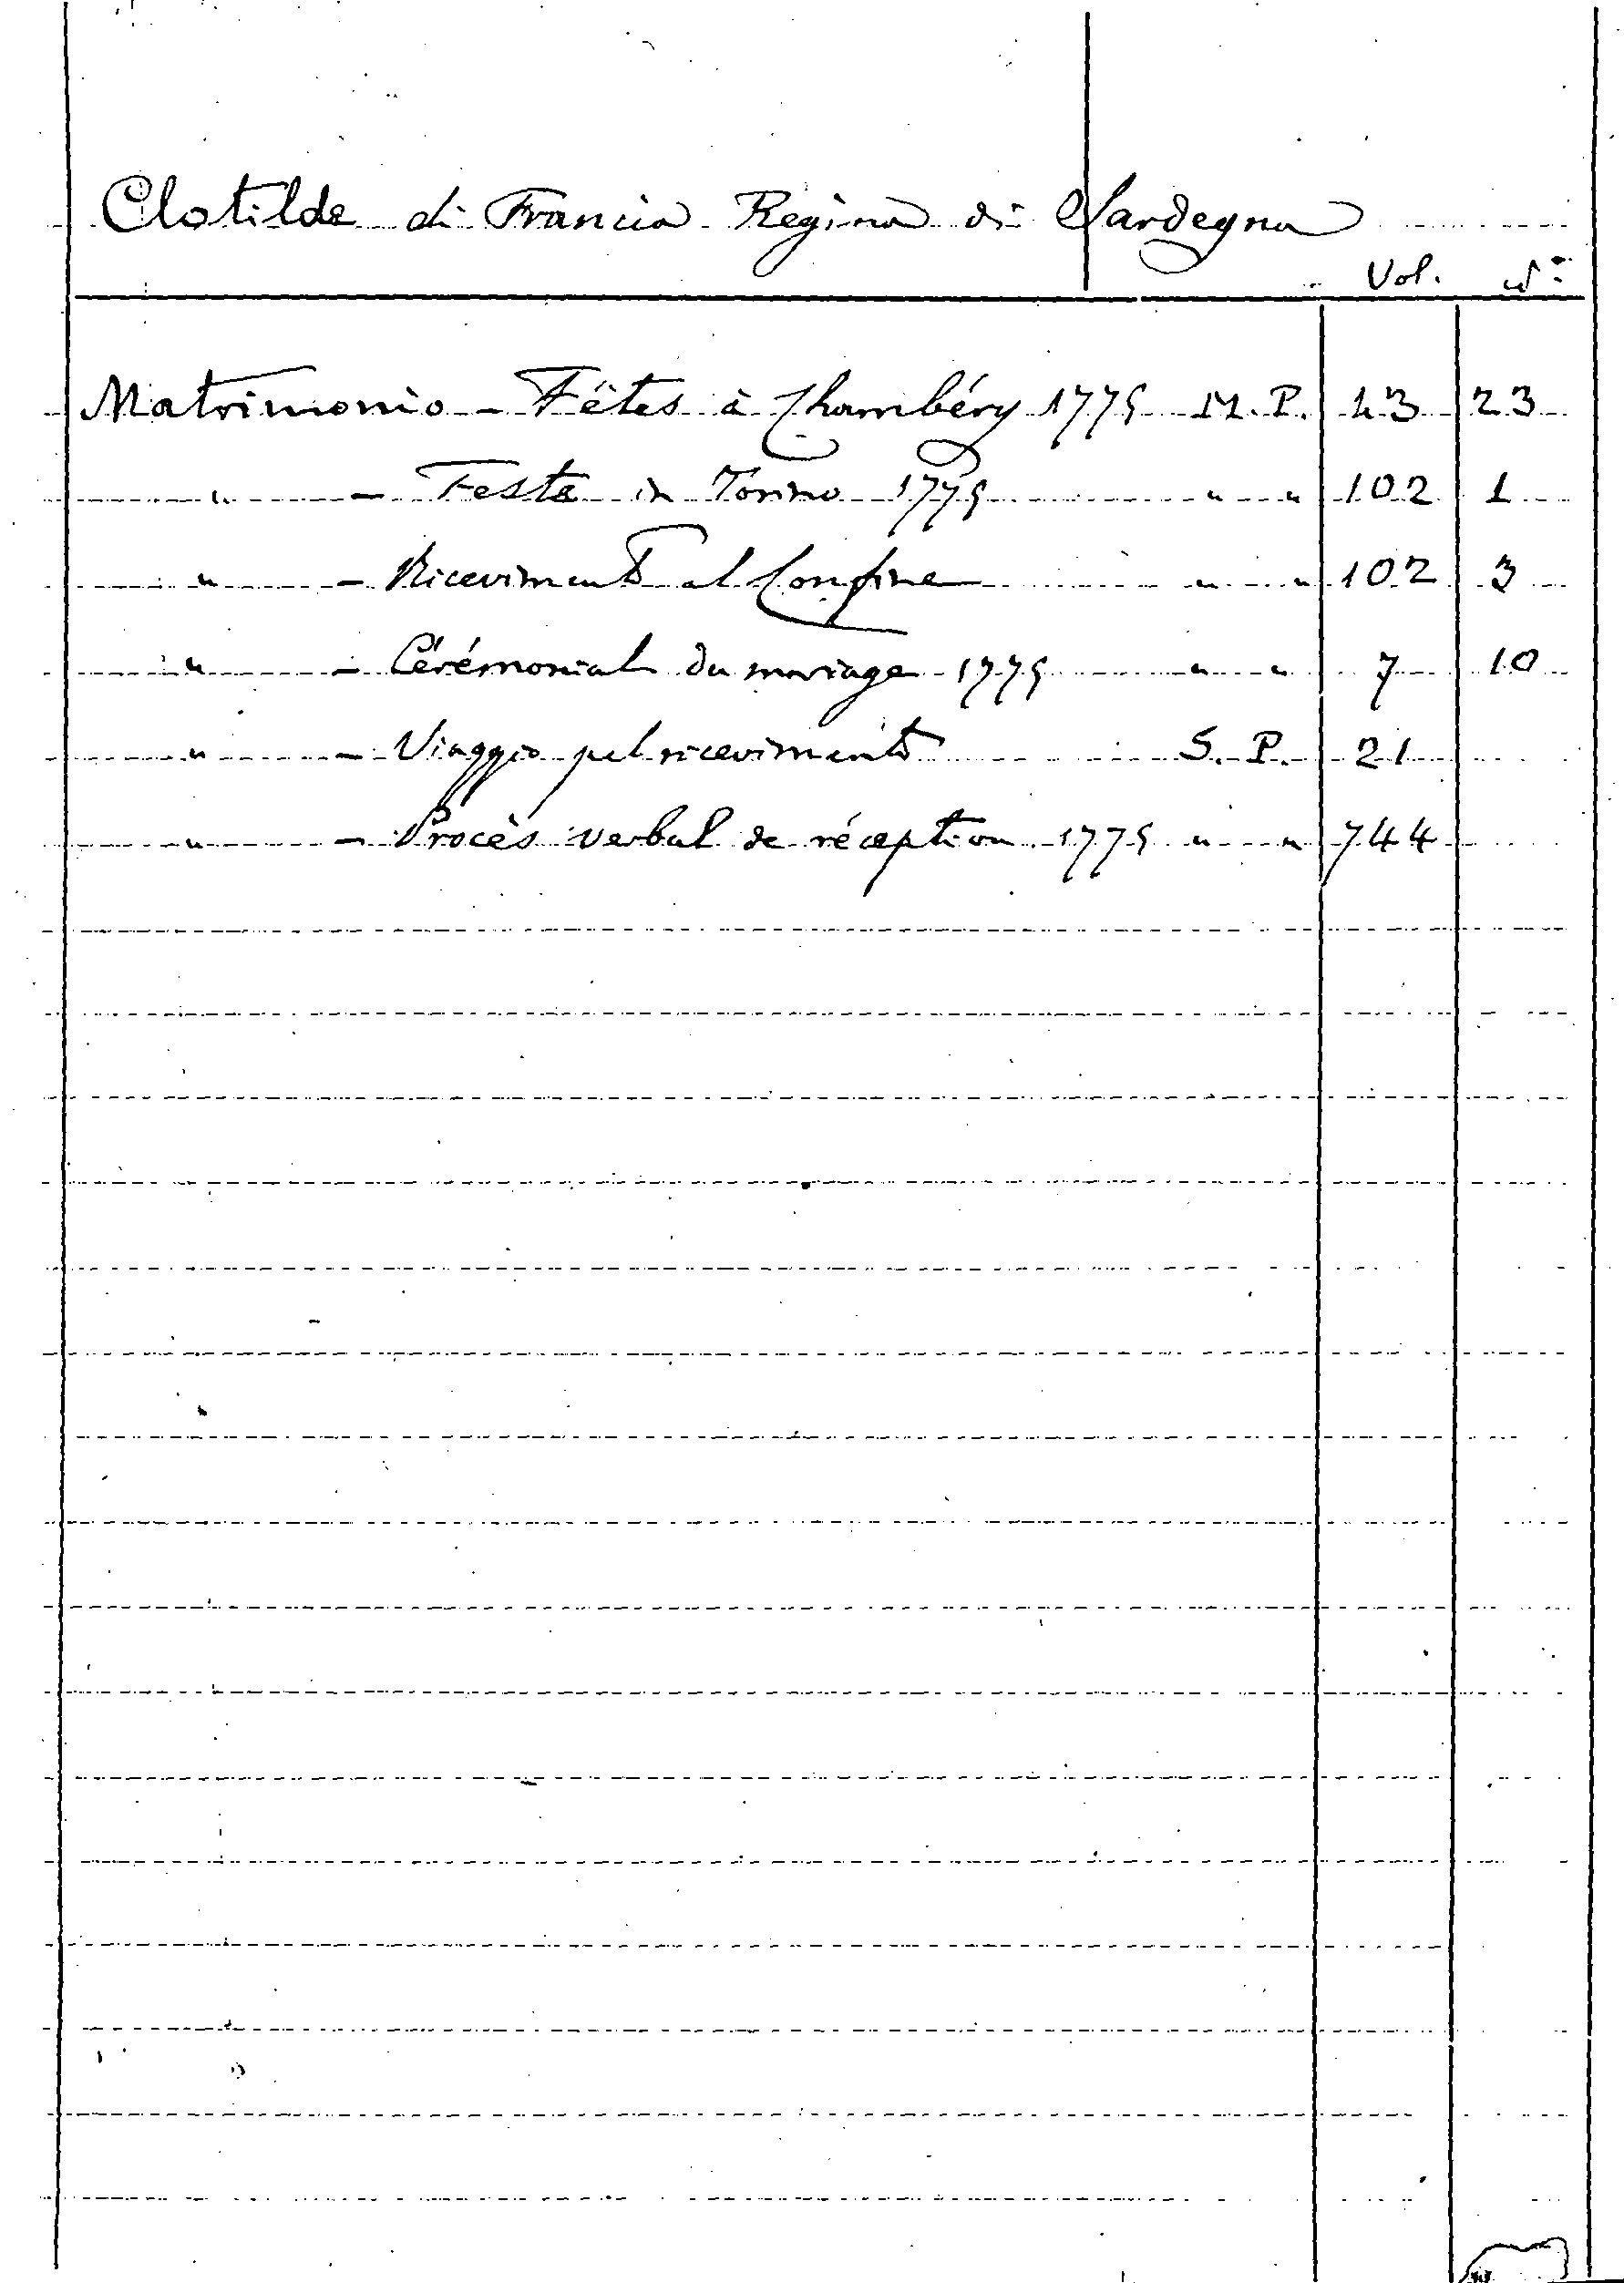 Clotilde di Francia Regina di Sardegna
Vol. N°
Matrimonio - Fêtes à Chambéry 1775 M. P. 43 23
" - Feste in Torino 1775 " " 102 1
" - Ricevimento al Confine " " 102 3
" - Cérémonial du mariage 1775 " " 7 10
" - Viaggio pel ricevimento S. P. 21
" - Procès verbal de réception 1775 " " 744